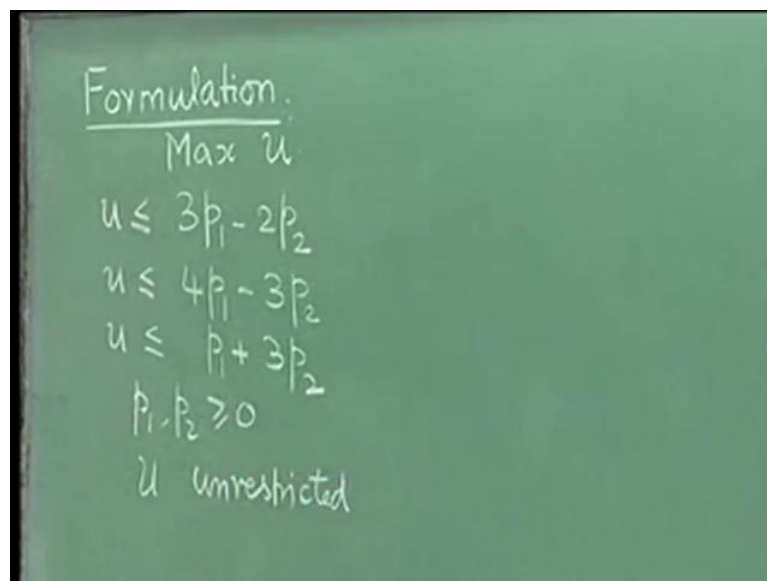 Formulation.
Max u.
u ≤ 3p₁ - 2p₂
u ≤ 4p₁ - 3p₂
u ≤ p₁ + 3p₂
p₁, p₂ ≥ 0
u unrestricted